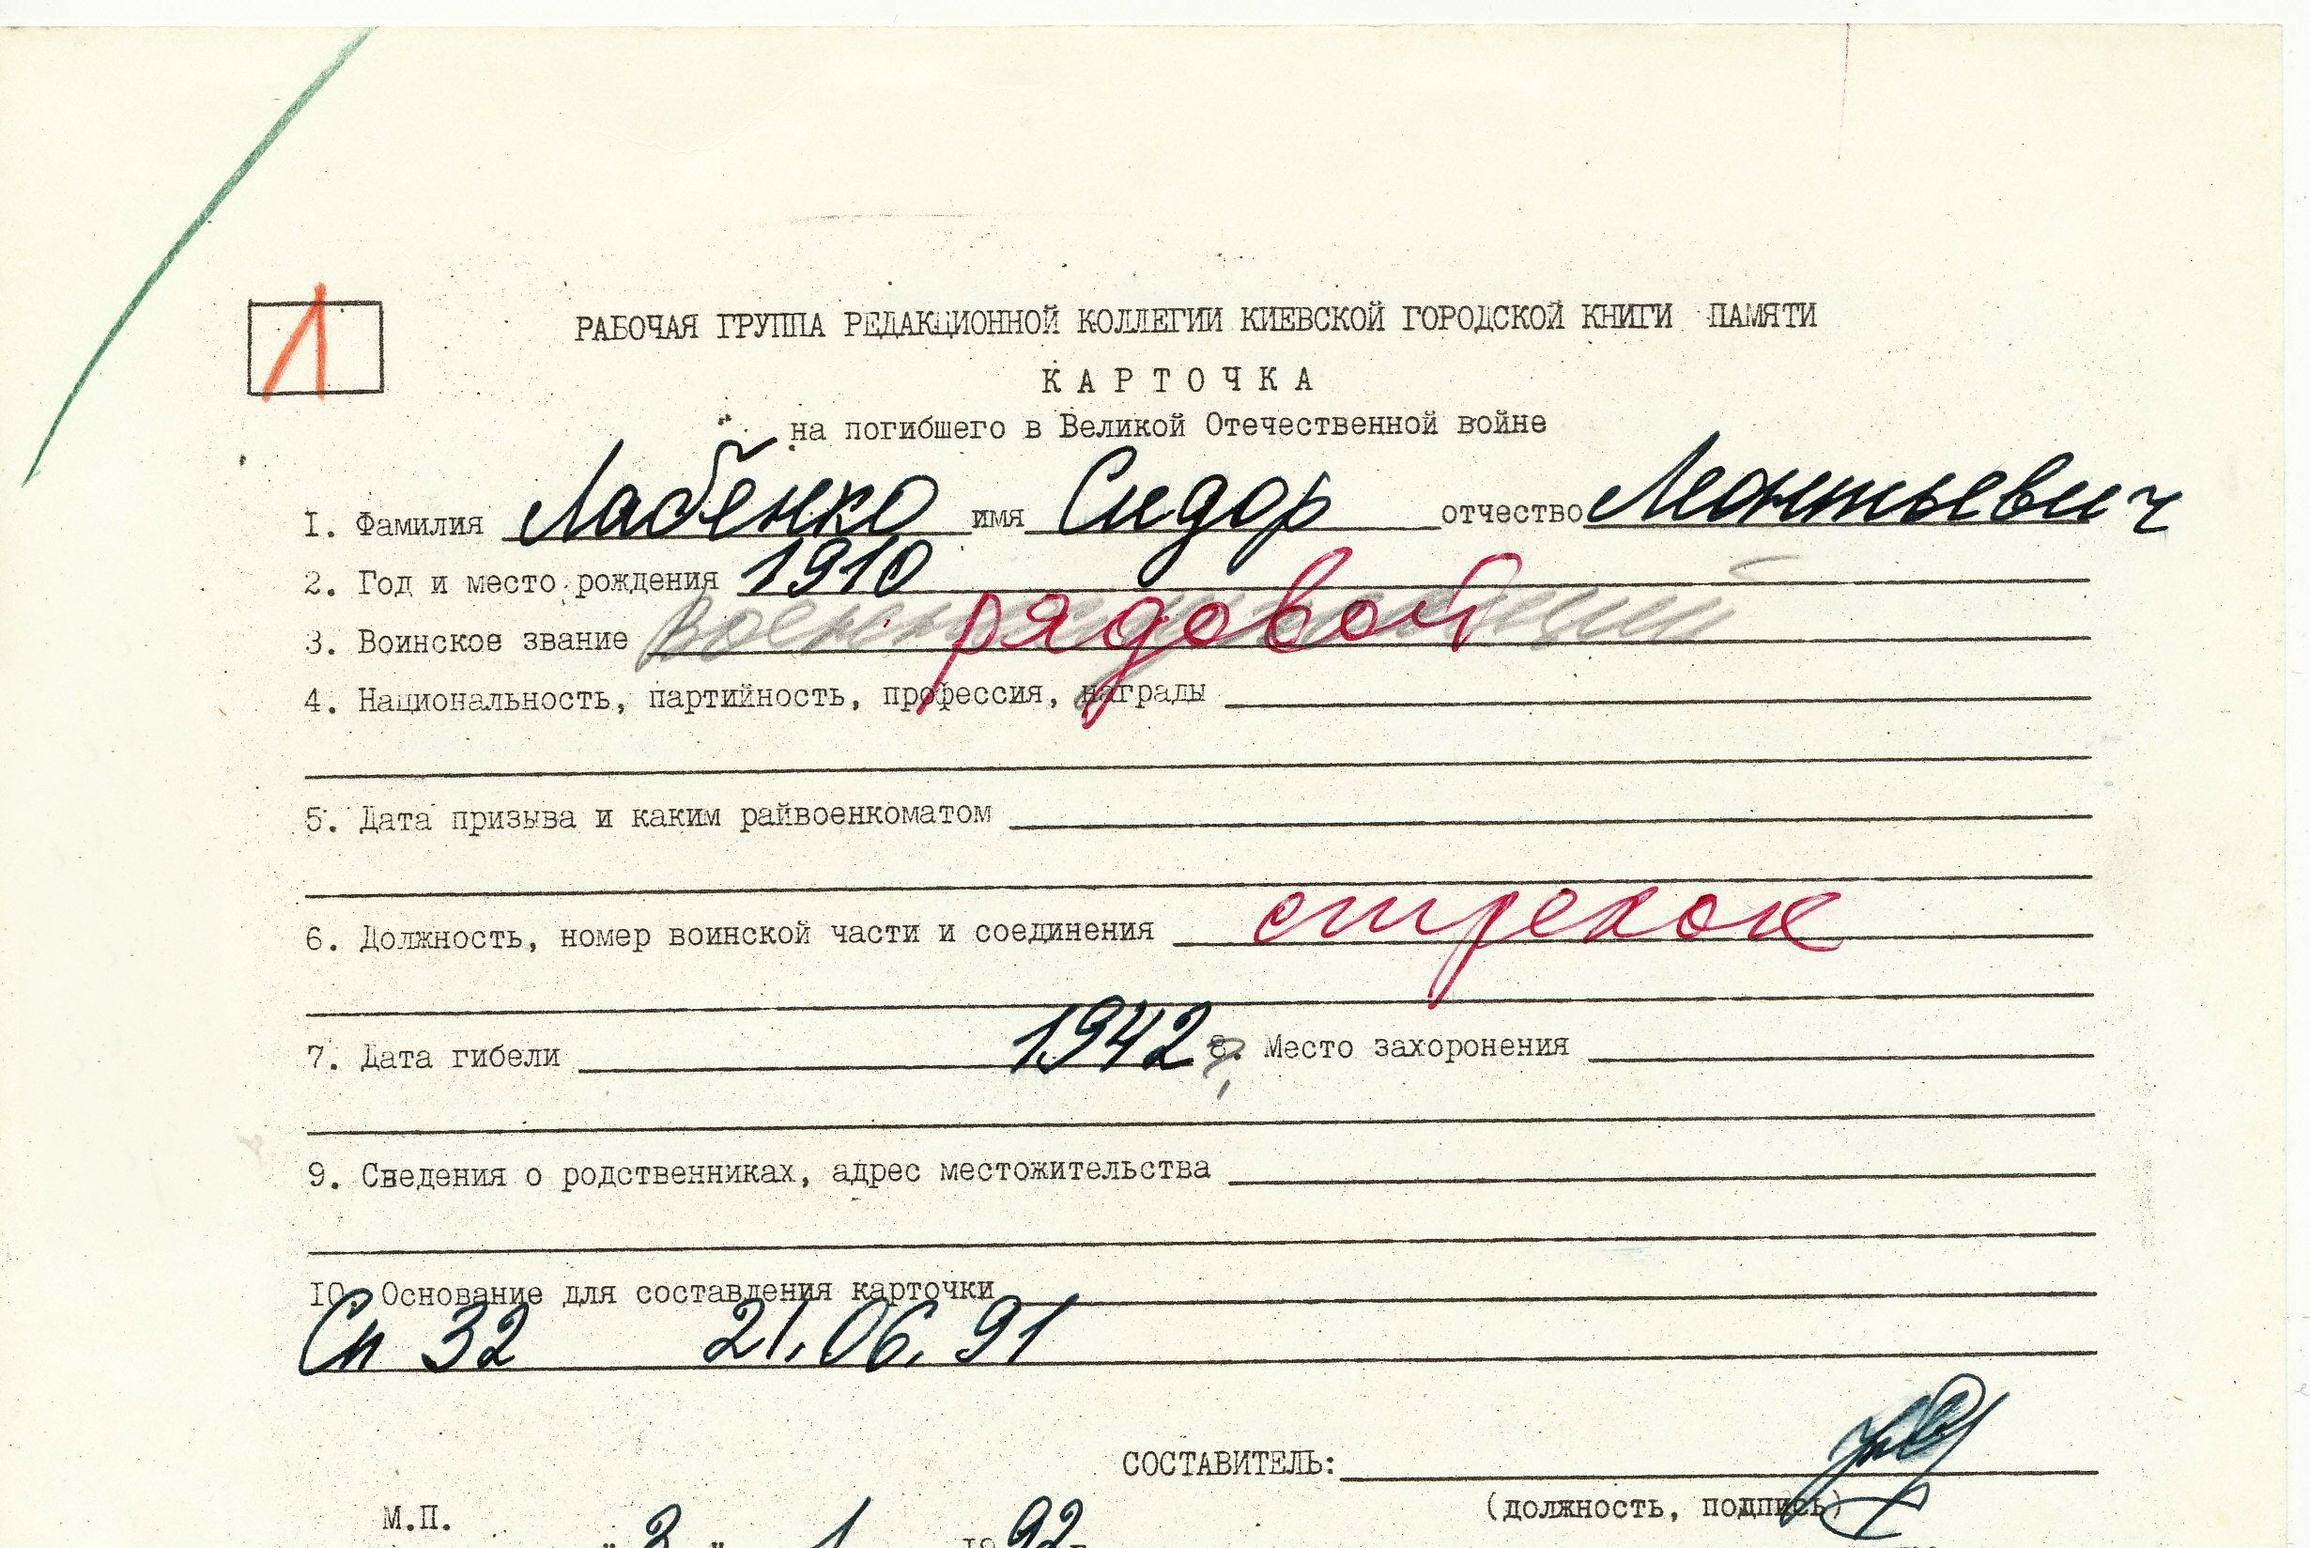 1
РАБОЧАЯ ГРУППА РЕДАКЦИОННОЙ КОЛЛЕГИИ КИЕВСКОЙ ГОРОДСКОЙ КНИГИ ПАМЯТИ
КАРТОЧКА
на погибшего в Великой Отечественной войне
I. Фамилия Лабенко имя Сидор отчество Леонтьевич
2. Год и место рождения 1910
3. Воинское звание рядовой
4. Национальность, партийность, профессия, награды
5. Дата призыва и каким райвоенкоматом
6. Должность, номер воинской части и соединения стрелок
7. Дата гибели 1942 ? 8. Место захоронения
9. Сведения о родственниках, адрес местожительства
IO. Основание для составления карточки
Сп 32 21.06.91
СОСТАВИТЕЛЬ:
(должность, подпись)
М.П.
"3" 1 1992г